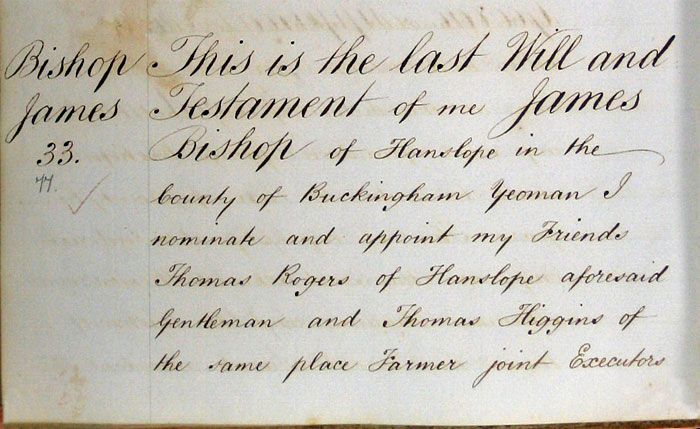 Bishop
James
33.
77.
This is the last Will and
Testament of me James
Bishop of Hanslope in the
County of Buckingham Yeoman I
nominate and appoint my Friends
Thomas Rogers of Hanslope aforesaid
Gentleman and Thomas Higgins of
the same place Farmer joint Executors